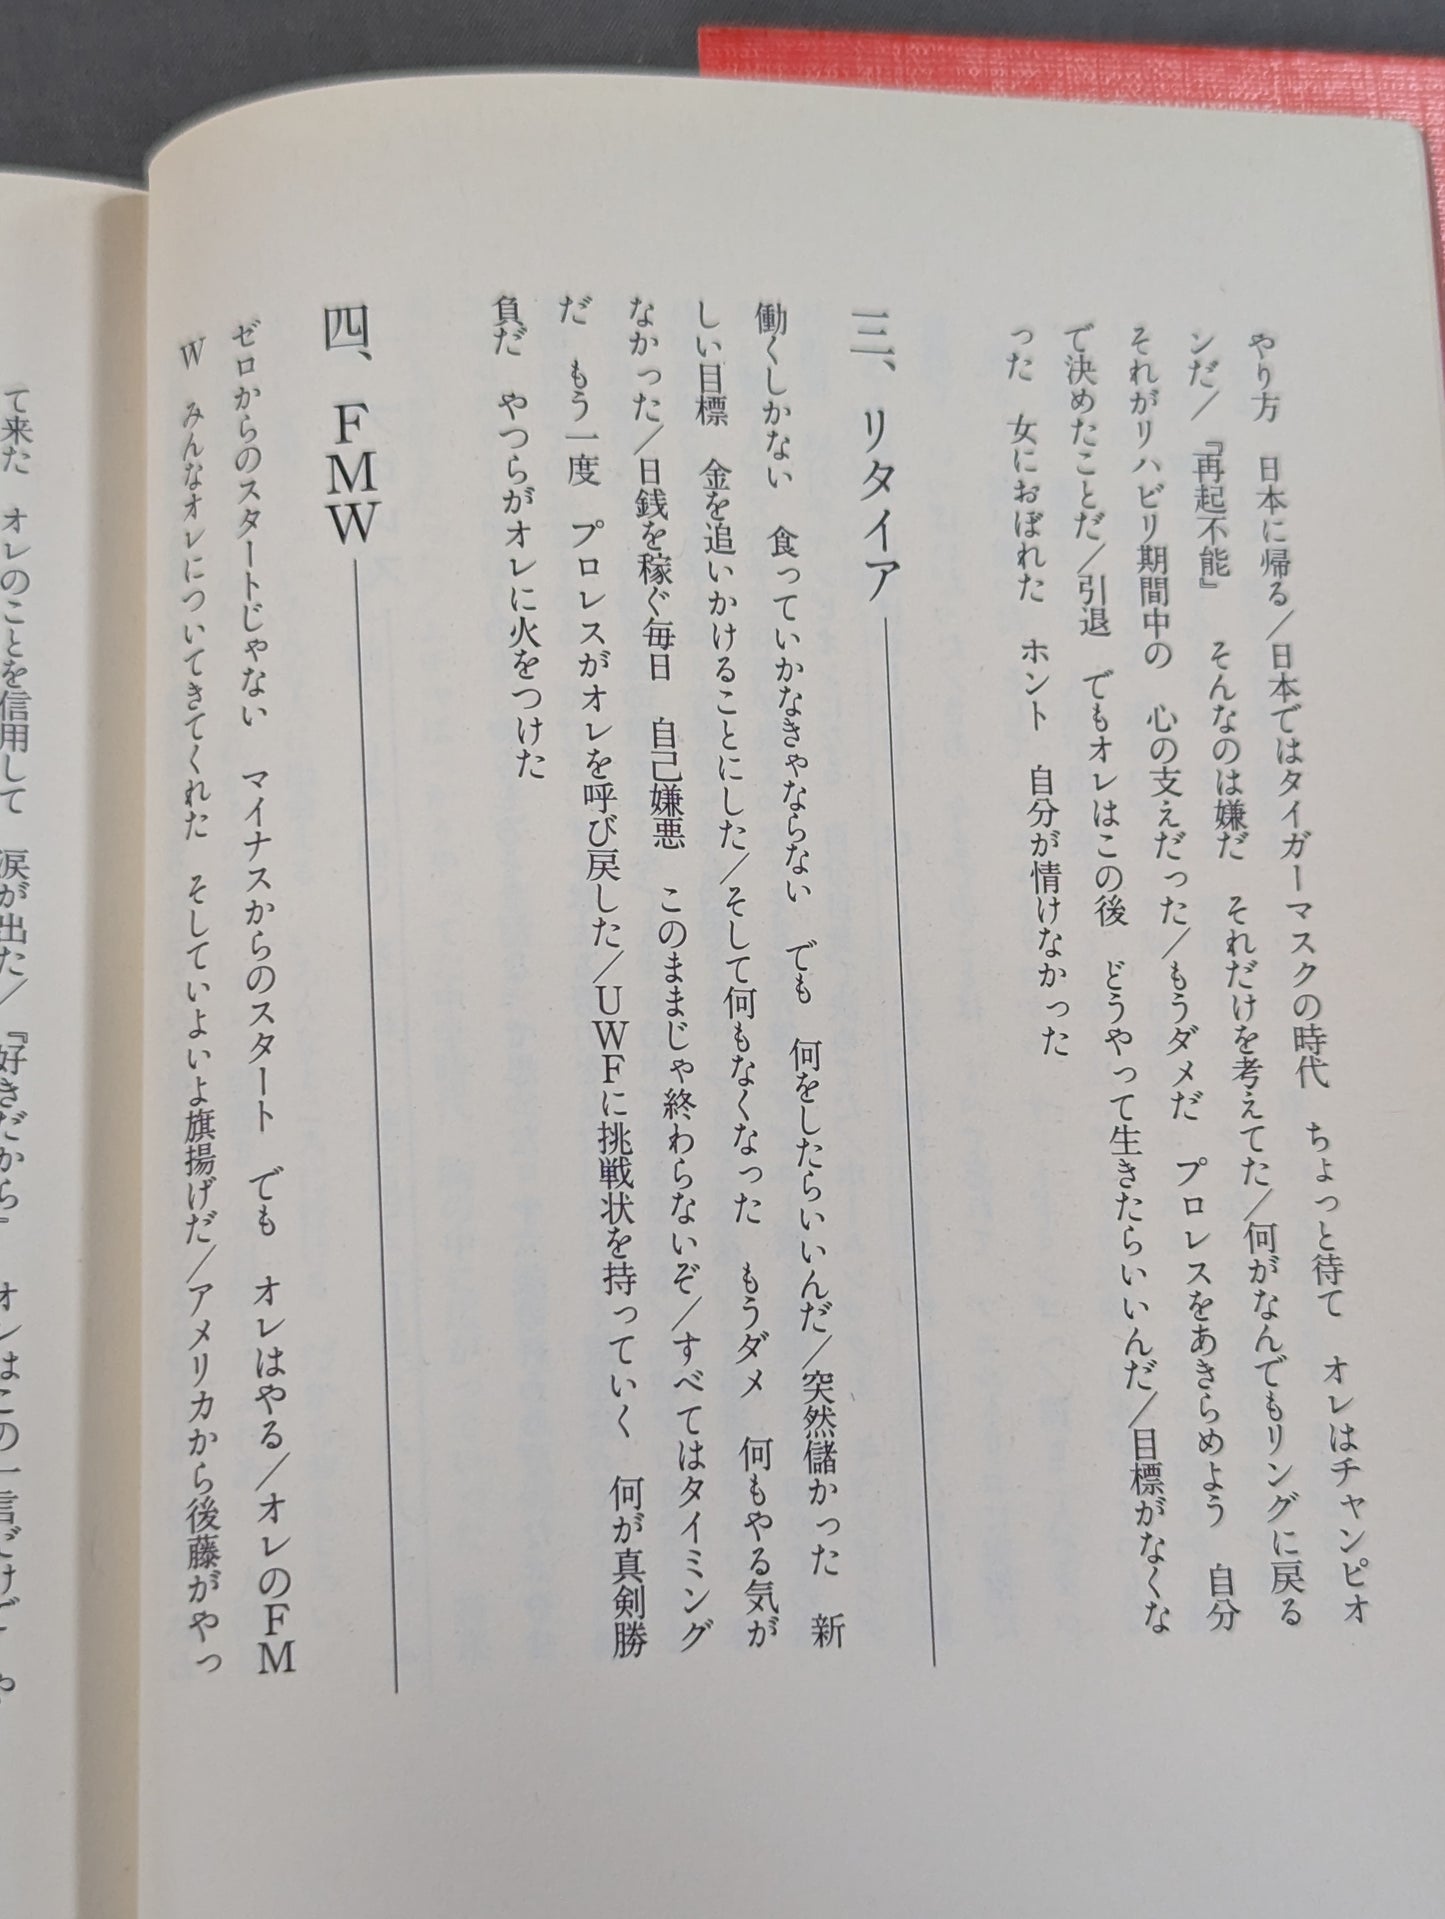 やり方　日本に帰る／日本ではタイガーマスクの時代　ちょっと待て　オレはチャンピオ
ンだ／『再起不能』　そんなのは嫌だ　それだけを考えてた／何がなんでもリングに戻る
それがリハビリ期間中の　心の支えだった／もうダメだ　プロレスをあきらめよう　自分
で決めたことだ／引退　でもオレはこの後　どうやって生きたらいいんだ／目標がなくな
った　女におぼれた　ホント　自分が情けなかった
三、リタイア
働くしかない　食っていかなきゃならない　でも　何をしたらいいんだ／突然儲かった　新
しい目標　金を追いかけることにした／そして何もなくなった　もうダメ　何もやる気が
なかった／日銭を稼ぐ毎日　自己嫌悪　このままじゃ終わらないぞ／すべてはタイミング
だ　もう一度　プロレスがオレを呼び戻した／UWFに挑戦状を持っていく　何が真剣勝
負だ　やつらがオレに火をつけた
四、FMW
ゼロからのスタートじゃない　マイナスからのスタート　でも　オレはやる／オレのFM
W　みんなオレについてきてくれた　そしていよいよ旗揚げだ／アメリカから後藤がやっ
て来た　オレのことを信用して　涙が出た／『好きだから』